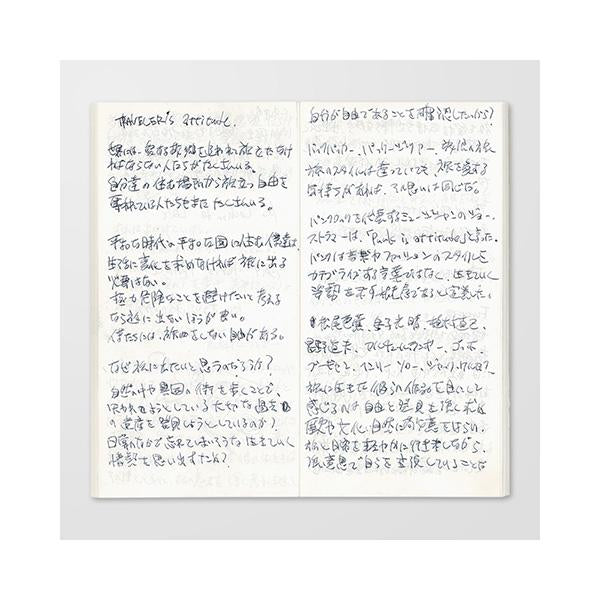 TRAVELER's attitude.
世界には、家など故郷を追われ旅をしなけ
ればならない人たちがたくさんいる。
自分達の住む場所から旅立つ自由を
奪われている人たちもまたたくさんいる。
平和な時代の平和な国に住む僕達は、
生活に変化を求めなければ旅に出る
必要はない。
極力危険なことを避けたいと考える
なら旅に出ないほうが良い。
僕たちには、旅をしない自由がある。
なぜ旅に出たいと思うのだろうか?
自然の中や異国の街を歩くことで、
失われようとしている大切な過去
の遺産を発見しようとしているのか?
日常のなかで忘れてしまうような生きていく
情熱を思い出すため?
自分が自由であることを確認したいから?
バックパッカー、バッケージツアー、放浪の旅
旅のスタイルは違っていても、旅を愛する
気持ちがあれば、その思いは同じだ。
パンクロックを代表するミュージシャンのジョー・
ストラマーは、「Punk is attitude」と言った。
パンクは音楽やファッションのスタイルを
カテゴライズする言葉ではなく、生きていく
姿勢を示す態度であると定義した。
松尾芭蕉、金子光晴、植村直己、
星野道夫、ヴィム・ヴェンダース、ゴッホ、
ゴーギャン、ヘンリー・ソロー、ジャック・ケルアック
旅に生きた彼らの作品を見たりして
感じるのは自由と発見を強く求め
歴史や文化、自然に対し敬意をはらい、
旅と日常を軽やかに行き来しながら、
強い意思で自らを表現していることだ